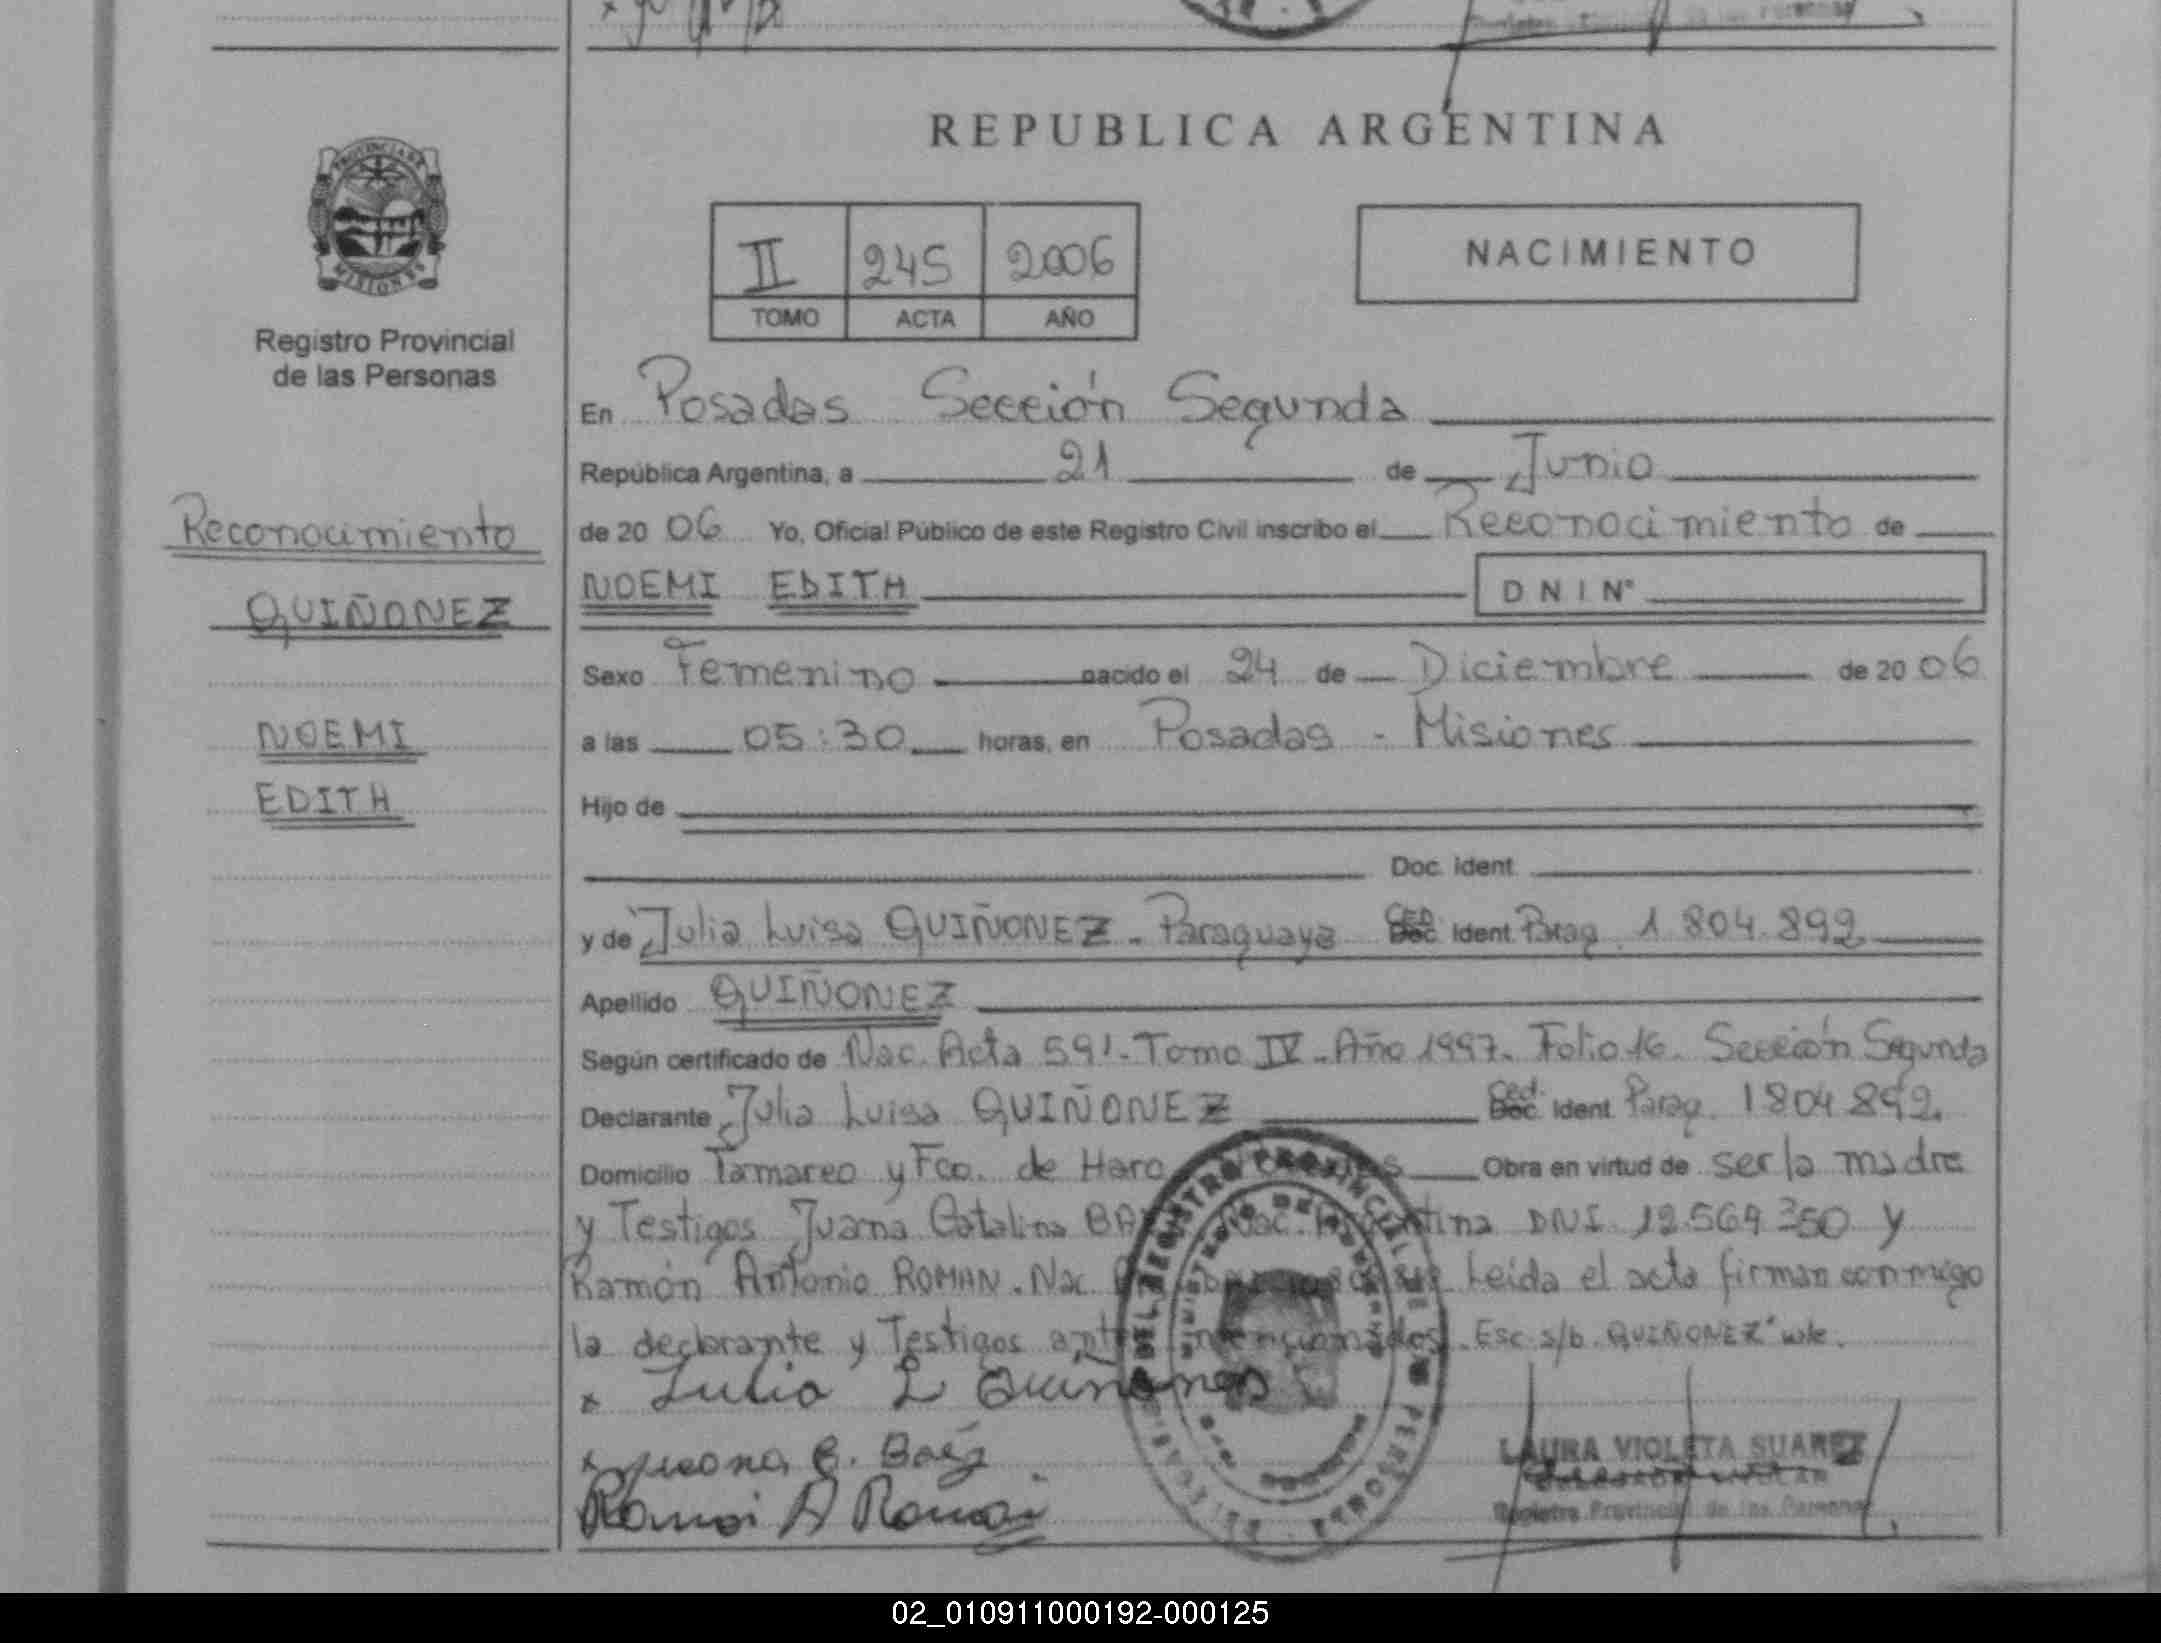 REPUBLICA ARGENTINA
PROVINCIA DE
MISIONES
Registro Provincial
de las Personas
II 245 2006
TOMO ACTA AÑO
NACIMIENTO
En Posadas Sección Segunda
República Argentina, a 21 de Junio
de 20 06 Yo, Oficial Público de este Registro Civil inscribo el Reconocimiento de
NOEMI EDITH DNI Nº
Reconocimiento
QUIÑONEZ
NOEMI
EDITH
Sexo Femenino nacido el 24 de Diciembre de 20 06
a las 05:30 horas, en Posadas - Misiones
Hijo de
Doc. Ident.
y de Julia Luisa QUIÑONEZ - Paraguaya CED Doc. Ident. Parag. 1 804.892
Apellido QUIÑONEZ
Según certificado de Nac. Acta 591 - Tomo IV - Año 1997. Folio 16. Sección Segunda
Declarante Julia Luisa QUIÑONEZ Ced. Doc. Ident. Parag. 1804892.
Domicilio Tamareo y Fco. de Haro Obra en virtud de ser la madre
y Testigos Juana Catalina Nac. Argentina DNI 12.569 350 y
Ramón Antonio ROMAN. Nac. Leída el acta firman conmigo
la declarante y Testigos Esc s/b. QUIÑONEZ" vale.
x Julia L Quiñones
x Juana C. Baéz
Ramon A Roman
LAURA VIOLETA SUAREZ
Registro Provincial de las Personas
02_010911000192-000125